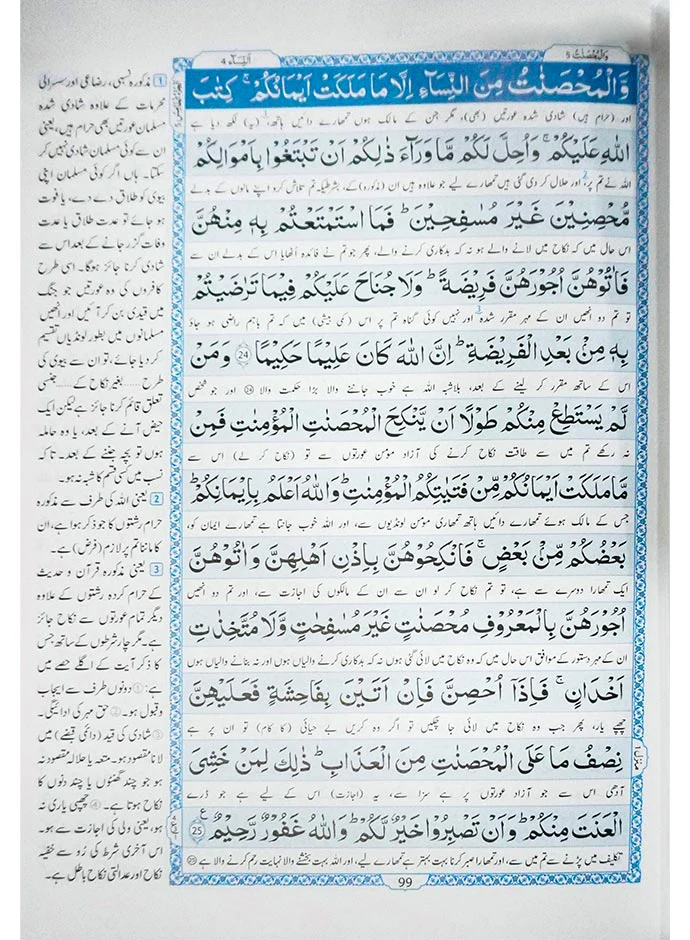 وَالْمُحْصَنٰتُ 5
اَلنِّسَآء 4
وَّالْمُحْصَنٰتُ مِنَ النِّسَآءِ اِلَّا مَا مَلَكَتْ اَيْمَانُكُمْ ۚ كِتٰبَ
اور (حرام ہیں) شادی شدہ عورتیں (بھی)، مگر جن کے مالک ہوں تمھارے دائیں ہاتھ، (یہ) لکھ دیا ہے
اللّٰهِ عَلَيْكُمْ ۚ وَاُحِلَّ لَكُمْ مَّا وَرَآءَ ذٰلِكُمْ اَنْ تَبْتَغُوْا بِاَمْوَالِكُمْ
اللہ نے تم پر، اور حلال کر دی گئی ہیں تمھارے لیے جو علاوہ ہیں ان (مذکورہ) کے، بشرطیکہ تم تلاش کرو اپنے مالوں کے بدلے
مُّحْصِنِيْنَ غَيْرَ مُسٰفِحِيْنَ ؕ فَمَا اسْتَمْتَعْتُمْ بِهٖ مِنْهُنَّ
اس حال میں کہ نکاح میں لانے والے ہو نہ کہ بدکاری کرنے والے، پھر جو تم نے فائدہ اٹھایا اس کے بدلے ان سے
فَاٰتُوْهُنَّ اُجُوْرَهُنَّ فَرِيْضَةً ؕ وَلَا جُنَاحَ عَلَيْكُمْ فِيْمَا تَرٰضَيْتُمْ
تو تم دو انھیں ان کے مہر مقرر شدہ اور نہیں کوئی گناہ تم پر اس (کمی بیشی) میں کہ تم باہم راضی ہو جاؤ
بِهٖ مِنْۢ بَعْدِ الْفَرِيْضَةِ ؕ اِنَّ اللّٰهَ كَانَ عَلِيْمًا حَكِيْمًا 24 وَمَنْ
اس کے ساتھ مقرر کر لینے کے بعد، بلاشبہ اللہ ہے خوب جاننے والا بڑا حکمت والا 24 اور جو شخص
لَّمْ يَسْتَطِعْ مِنْكُمْ طَوْلًا اَنْ يَّنْكِحَ الْمُحْصَنٰتِ الْمُؤْمِنٰتِ فَمِنْ
نہ رکھے تم میں سے طاقت نکاح کرنے کی آزاد مومن عورتوں سے تو (نکاح کر لے) اس سے
مَّا مَلَكَتْ اَيْمَانُكُمْ مِّنْ فَتَيٰتِكُمُ الْمُؤْمِنٰتِ ؕ وَاللّٰهُ اَعْلَمُ بِاِيْمَانِكُمْ ؕ
جس کے مالک ہوئے تمھارے دائیں ہاتھ تمھاری مومن لونڈیوں سے، اور اللہ خوب جانتا ہے تمھارے ایمان کو،
بَعْضُكُمْ مِّنْۢ بَعْضٍ ۚ فَانْكِحُوْهُنَّ بِاِذْنِ اَهْلِهِنَّ وَاٰتُوْهُنَّ
ایک تمھارا دوسرے سے ہے، تو تم نکاح کر لو ان سے ان کے مالکوں کی اجازت سے، اور تم دو انھیں
اُجُوْرَهُنَّ بِالْمَعْرُوْفِ مُحْصَنٰتٍ غَيْرَ مُسٰفِحٰتٍ وَّلَا مُتَّخِذٰتِ
ان کے مہر دستور کے موافق اس حال میں کہ وہ نکاح میں لائی گئی ہوں نہ کہ بدکاری کرنے والیاں ہوں اور نہ بنانے والیاں ہوں
اَخْدَانٍ ۚ فَاِذَاۤ اُحْصِنَّ فَاِنْ اَتَيْنَ بِفَاحِشَةٍ فَعَلَيْهِنَّ
چھپے یار، پھر جب وہ نکاح میں لائی جا چکیں تو اگر وہ کریں بے حیائی (کا کام) تو ان پر ہے
نِصْفُ مَا عَلَى الْمُحْصَنٰتِ مِنَ الْعَذَابِ ؕ ذٰلِكَ لِمَنْ خَشِيَ
آدھی اس سے جو آزاد عورتوں پر ہے سزا سے، یہ (اجازت) اس کے لیے ہے جو ڈرے
الْعَنَتَ مِنْكُمْ ؕ وَاَنْ تَصْبِرُوْا خَيْرٌ لَّكُمْ ؕ وَاللّٰهُ غَفُوْرٌ رَّحِيْمٌ 25
تکلیف میں پڑنے سے تم میں سے، اور تمھارا صبر کرنا بہت بہتر ہے تمھارے لیے، اور اللہ بہت بخشنے والا نہایت رحم کرنے والا ہے 25
99
1 مذکورہ نسبی، رضاعی اور سسرالی
محرمات کے علاوہ شادی شدہ
مسلمان عورتیں بھی حرام ہیں، یعنی
ان سے کوئی مسلمان شادی نہیں کر
سکتا۔ ہاں اگر کوئی مسلمان اپنی
بیوی کو طلاق دے دے، یا فوت
ہو جائے تو عدت طلاق یا عدت
وفات گزر جانے کے بعد اس سے
شادی کرنا جائز ہوگا۔ اسی طرح
کافروں کی وہ عورتیں جو جنگ
میں قیدی بن کر آئیں اور انھیں
مسلمانوں میں بطور لونڈیاں تقسیم
کر دیا جائے، تو ان سے بیوی کی
طرح ..... بغیر نکاح کے ..... جنسی
تعلق قائم کرنا جائز ہے لیکن ایک
حیض آنے کے بعد، یا وہ حاملہ
ہوں تو بچہ جننے کے بعد۔ تاکہ
نسب میں کسی قسم کا شبہ نہ ہو۔
2 یعنی اللہ کی طرف سے مذکورہ
حرام رشتوں کا جو ذکر ہوا ہے، ان
کا ماننا تم پر لازم (فرض) ہے۔
3 یعنی مذکورہ قرآن و حدیث
کے حرام کردہ رشتوں کے علاوہ
دیگر تمام عورتوں سے نکاح جائز
ہے۔ مگر چار شرطوں کے ساتھ جس
کا ذکر آیت کے اگلے حصے میں
ہے: ① دونوں طرف سے ایجاب
وقبول ہو۔ ② حق مہر کی ادائیگی۔
③ شادی کی قید (دائمی قبضے) میں
لانا مقصود ہو۔ متعہ یا حلالہ مقصود نہ
ہو جو چند گھنٹوں یا چند دنوں کا
نکاح ہوتا ہے۔ ④ چھپی یاری نہ
ہو، یعنی ولی کی اجازت سے ہو۔
اس آخری شرط کی رُو سے خفیہ
نکاح اور عدالتی نکاح باطل ہے۔